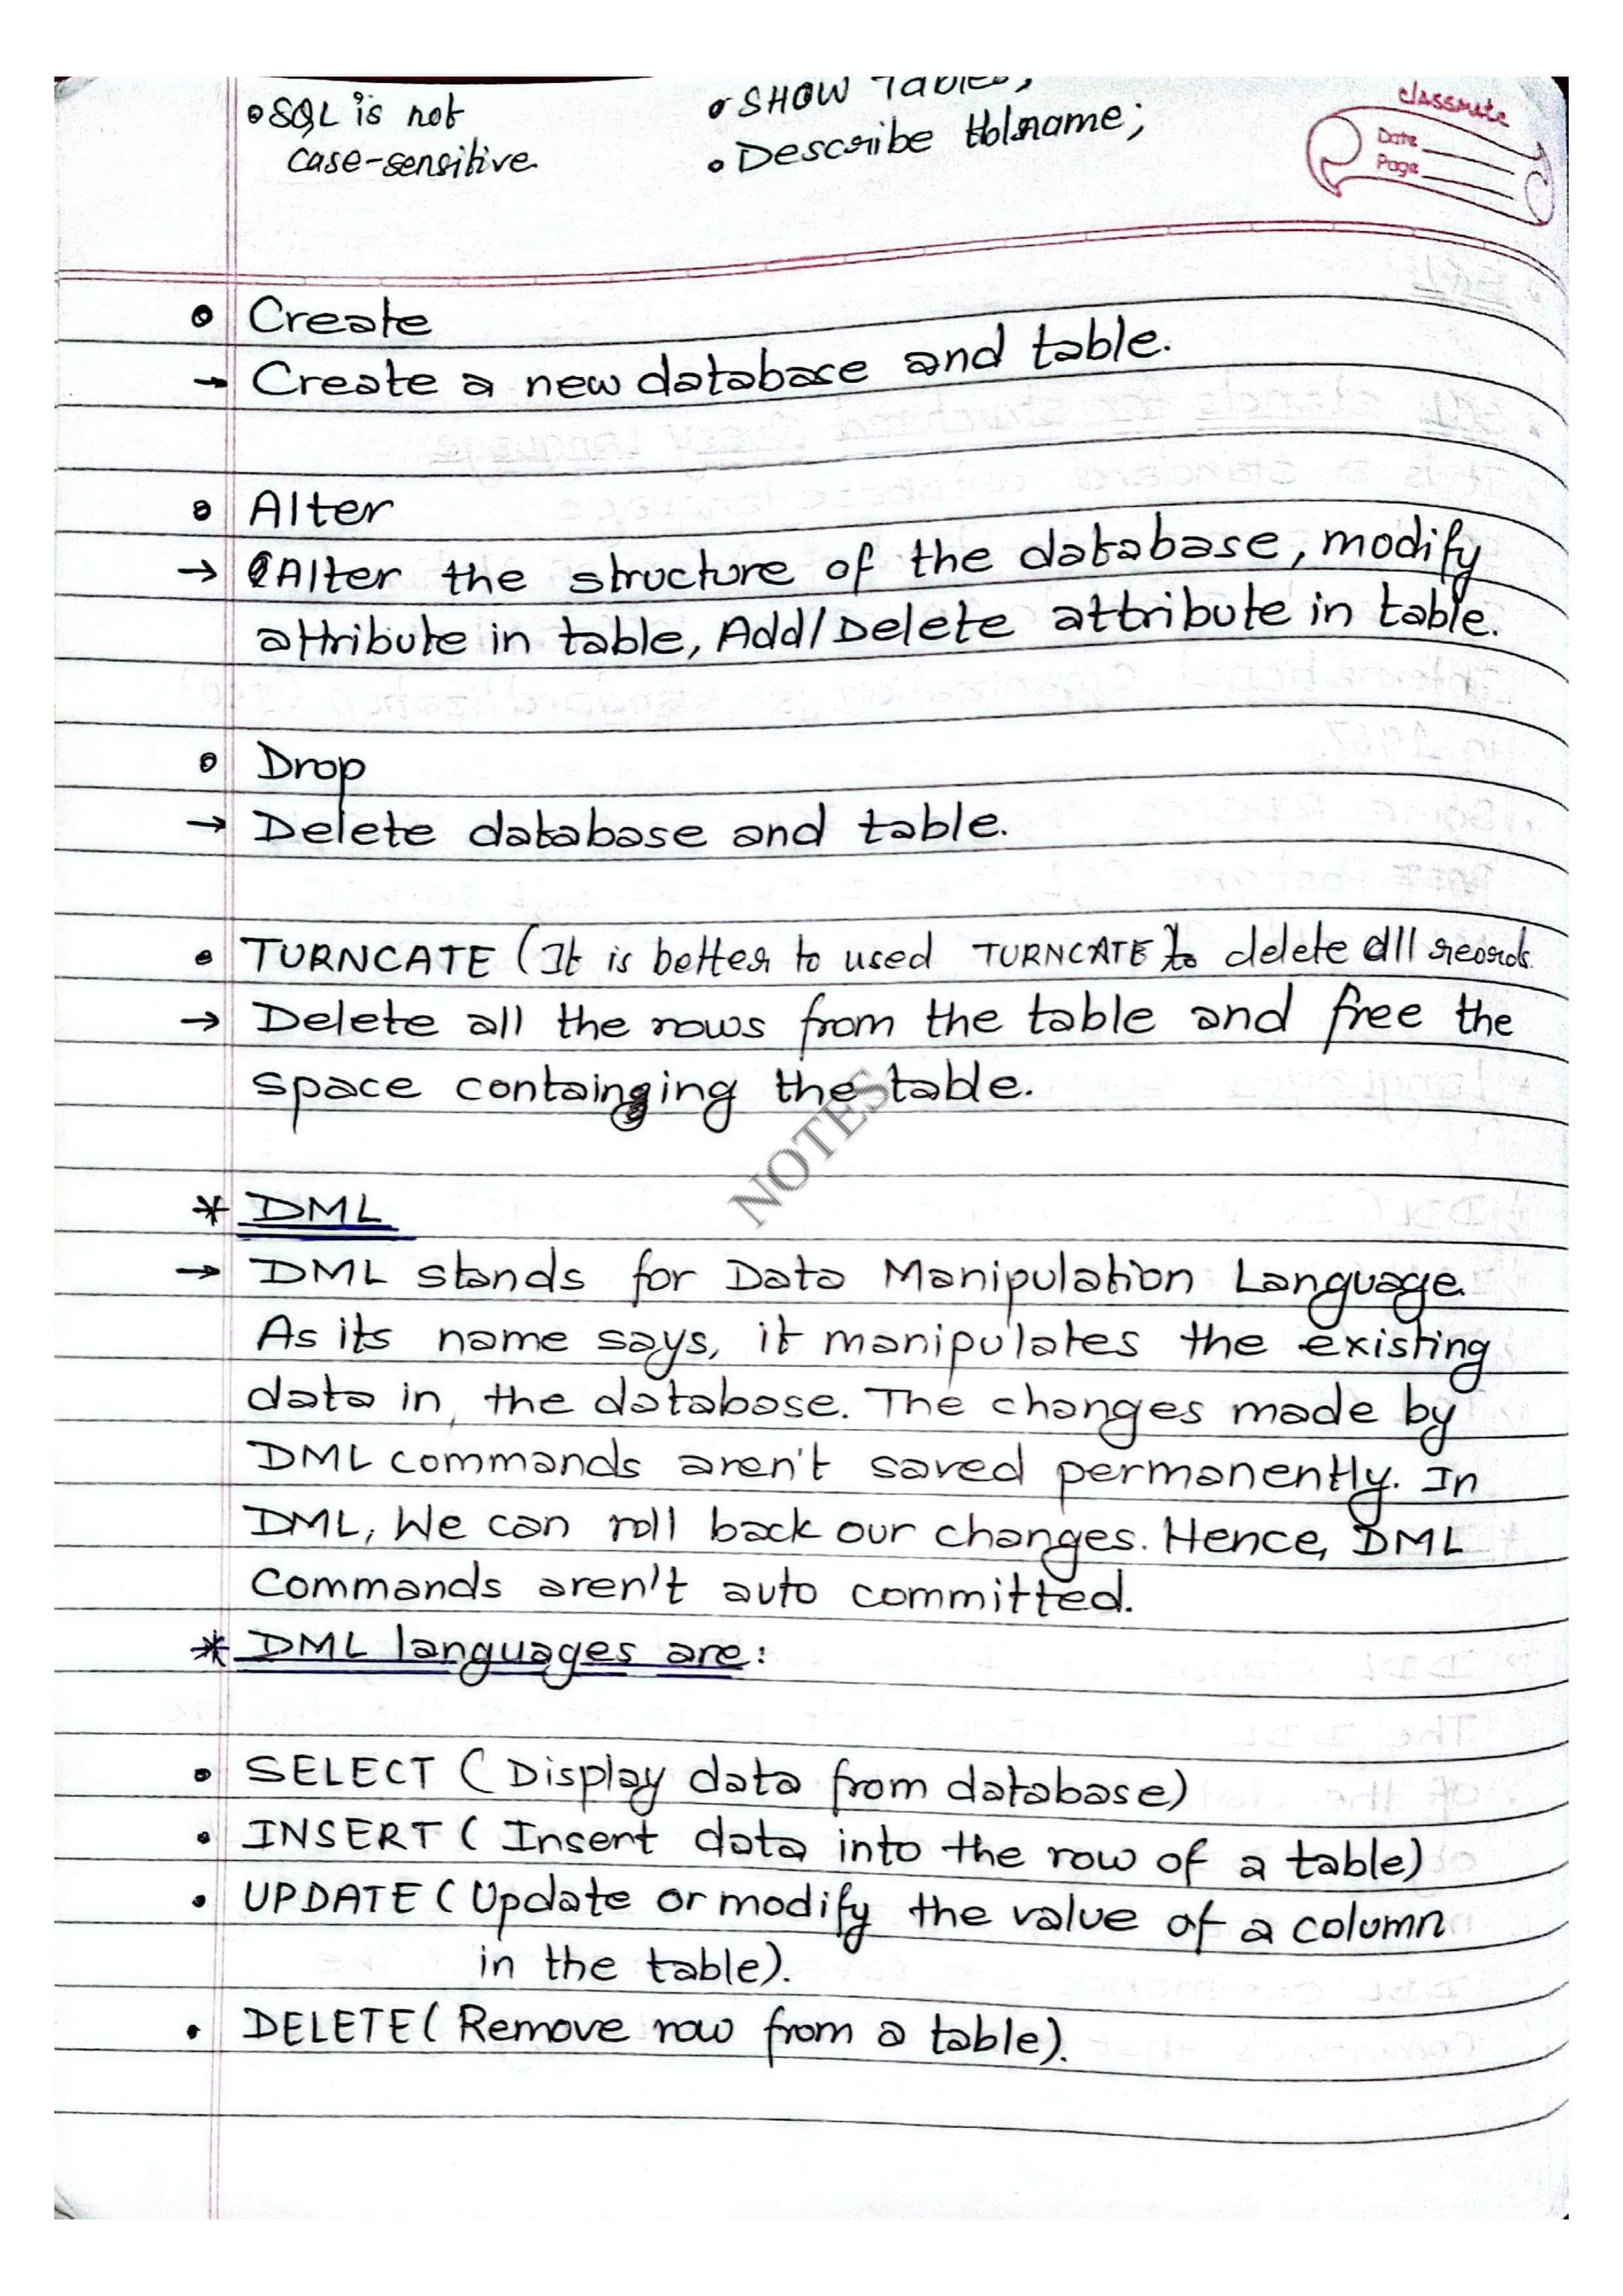 • SQL is not
case-sensitive
• SHOW Tables;
• Describe tblname;
classmate
Date
Page
• Create
→ Create a new database and table.
• Alter
→ Alter the structure of the database, modify
attribute in table, Add/Delete attribute in table.
• Drop
→ Delete database and table.
• TURNCATE (It is better to used TURNCATE to delete all records
→ Delete all the rows from the table and free the
space containging the table.
NOTES
* DML
→ DML stands for Data Manipulation Language.
As its name says, it manipulates the existing
data in the database. The changes made by
DML commands aren't saved permanently. In
DML, We can roll back our changes. Hence, DML
Commands aren't auto committed.
* DML languages are:
• SELECT ( Display data from database)
• INSERT ( Insert data into the row of a table)
• UPDATE ( Update or modify the value of a column
in the table).
• DELETE ( Remove row from a table).